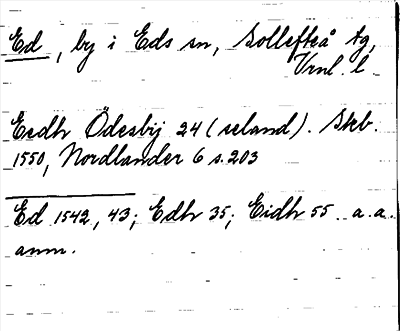 Ed, by i Eds sn, Sollefteå tg,
Vrnl. l.
Eedh Ödesbij 24 (seland). Skb.
1550, Nordlander 6 s. 203
Ed 1542, 43; Edh 35; Eidh 55. a.a.
anm.